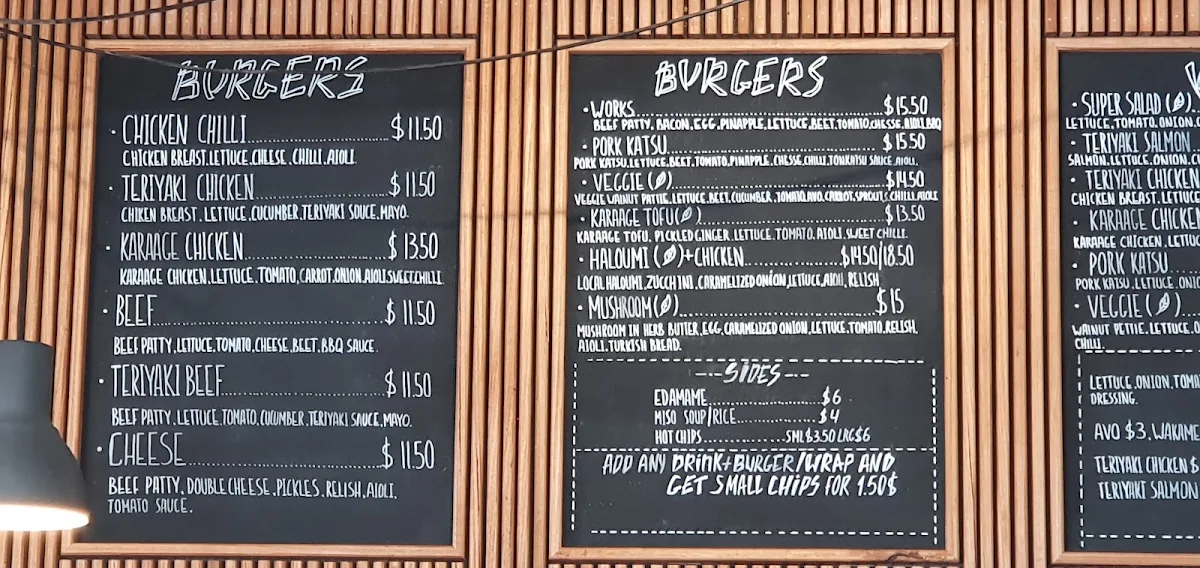 BURGERS
· CHICKEN CHILLI.................... $11.50
CHICKEN BREAST.LETTUCE.CHEESE.CHILLI.AIOLI.
· TERIYAKI CHICKEN.................... $11.50
CHIKEN BREAST.LETTUCE.CUCUMBER.TERIYAKI SOUCE.MAYO.
· KARAAGE CHICKEN.................... $1350
KARAAGE CHICKEN.LETTUCE.TOMATO.CARROT.ONION.AIOLI.SWEET.CHILLI.
· BEEF.................... $11.50
BEEF PATTY.LETTUCE.TOMATO.CHEESE.BEET.BBQ SAUCE.
· TERIYAKI BEEF.................... $11.50
BEEF PATTY.LETTUCE.TOMATO.CUCUMBER.TERIYAKI SAUCE.MAYO.
· CHEESE.................... $11.50
BEEF PATTY.DOUBLE CHEESE.PICKLES.RELISH.AIOLI.
TOMATO SAUCE.
BURGERS
· WORKS.................... $15.50
BEEF PATTY.BACON.EGG.PINAPPLE.LETTUCE.BEET.TOMATO.CHESSE.AIOLI.BBQ
· PORK KATSU.................... $15.50
PORK KATSU.LETTUCE.BEET.TOMATO.PINAPPLE.CHESSE.CHILLI.TONKATSU SAUCE.AIOLI.
· VEGGIE ( ).................... $14.50
VEGGIE WALNUT PATTIE.LETTUCE.BEET.CUCUMBER.TOMATO.AVO.CARROT.SPROUTS.CHILLI.AIOLI
· KARAAGE TOFU( ).................... $13.50
KARAAGE TOFU.PICKLED GINGER.LETTUCE.TOMATO.AIOLI.SWEET CHILLI.
· HALOUMI ( )+CHICKEN.................... $14.50/18.50
LOCAL HALOUMI.ZUCCHINI.CARAMELIZED ONION,LETTUCE,AIOLI, RELISH
· MUSHROOM( ).................... $15
MUSHROOM IN HERB BUTTER.EGG.CARAMELIZED ONION.LETTUCE.TOMATO.RELISH.
AIOLI.TURKISH BREAD.
---SIDES---
EDAMAME.................... $6
MISO SOUP/RICE.................... $4
HOT CHIPS.................... SML $3.50 LRG $6
ADD ANY DRINK+BURGER/WRAP AND
GET SMALL CHIPS FOR 1.50$
· SUPER SALAD ( )
LETTUCE.TOMATO.ONION.
· TERIYAKI SALMON
SALMON.LETTUCE.ONION.
· TERIYAKI CHICKEN
CHICKEN BREAST.LETTUCE
· KARAAGE CHICKEN
KARAAGE CHICKEN.
· PORK KATSU
PORK KATSU.LETTUCE.
· VEGGIE ( )
WALNUT PETTIE.LETTUCE.
CHILLI.
LETTUCE.ONION.
DRESSING.
AVO $3.WAKAME
TERIYAKI CHICKEN $
TERIYAKI SALMON